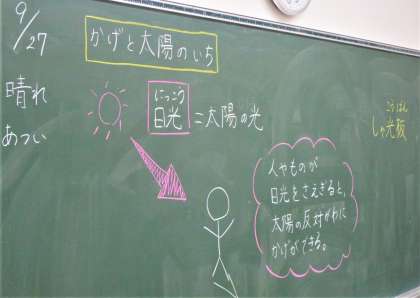 9/27
晴れ
あつい
かげと太陽のいち
にっこう
日光=太陽の光
こうばん
しゃ光板
人やものが
日光をさえぎると、
太陽の反対がわに
かげができる。